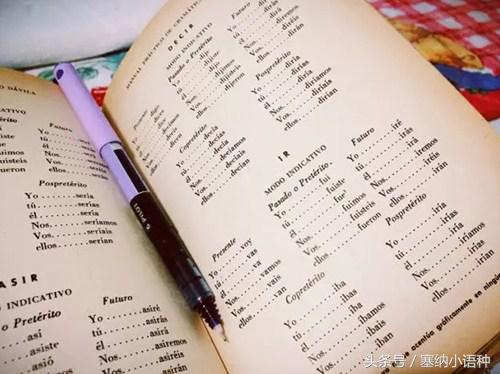 O DÁVILA
ICATIVO
Futuro
Yo
tú
él
Nos.
Vos.
ellos
Pospretérito
Yo.......sería
tú.......serías
él.......sería
Nos.....seríamos
Vos.....seríais
ellos....serían
ASIR
O INDICATIVO
o Pretérito
así
asiste
Futuro
Yo.......asiré
tú.......asirás
él.......asirá
Nos.....asiremos
Vos.....asiréis
ellos
MANUAL PRÁCTICO DE GRAMÁTICA
DECIR
MODO INDICATIVO
Presente
Yo
tú
él
Nos.
Vos.
ellos
Pasado o Pretérito
Yo.......dije
tú
él.......dijo
Nos.....dijimos
Vos.....dijisteis
ellos....dijeron
Futuro
Yo
tú
él
Nos.
Vos.
ellos....dirán
Copretérito
Yo.......decía
tú.......decías
él.......decía
Nos.....decíamos
Vos.....decíais
ellos....decían
Pospretérito
Yo.......diría
tú.......dirías
él.......diría
Nos.....diríamos
Vos.....diríais
ellos....dirían
IR
MODO INDICATIVO
Presente
Yo.......voy
tú.......vas
él.......va
Nos.....vamos
Vos.....vais
ellos....van
Pasado o Pretérito
Yo.......fui
tú.......fuiste
él.......fue
Nos.....fuimos
Vos.....fuisteis
ellos....fueron
Futuro
Yo.......iré
tú.......irás
él.......irá
Nos.....iremos
Vos.....iréis
ellos....irán
Copretérito
Yo.......iba
tú.......ibas
él.......iba
Nos.....íbamos
Vos.....ibais
ellos....iban
Pospretérito
Yo.......iría
tú.......irías
él.......iría
Nos.....iríamos
Vos.....iríais
ellos....irían
acentúa gráficamente en ningun
PILOT
头条号 / 塞纳小语种